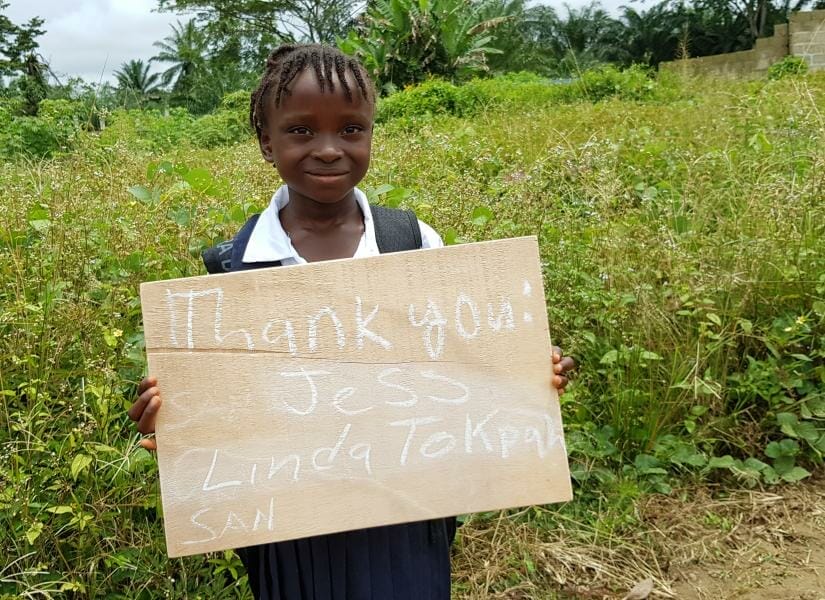 Thank you:
Jess
Linda Tokpah
SAN